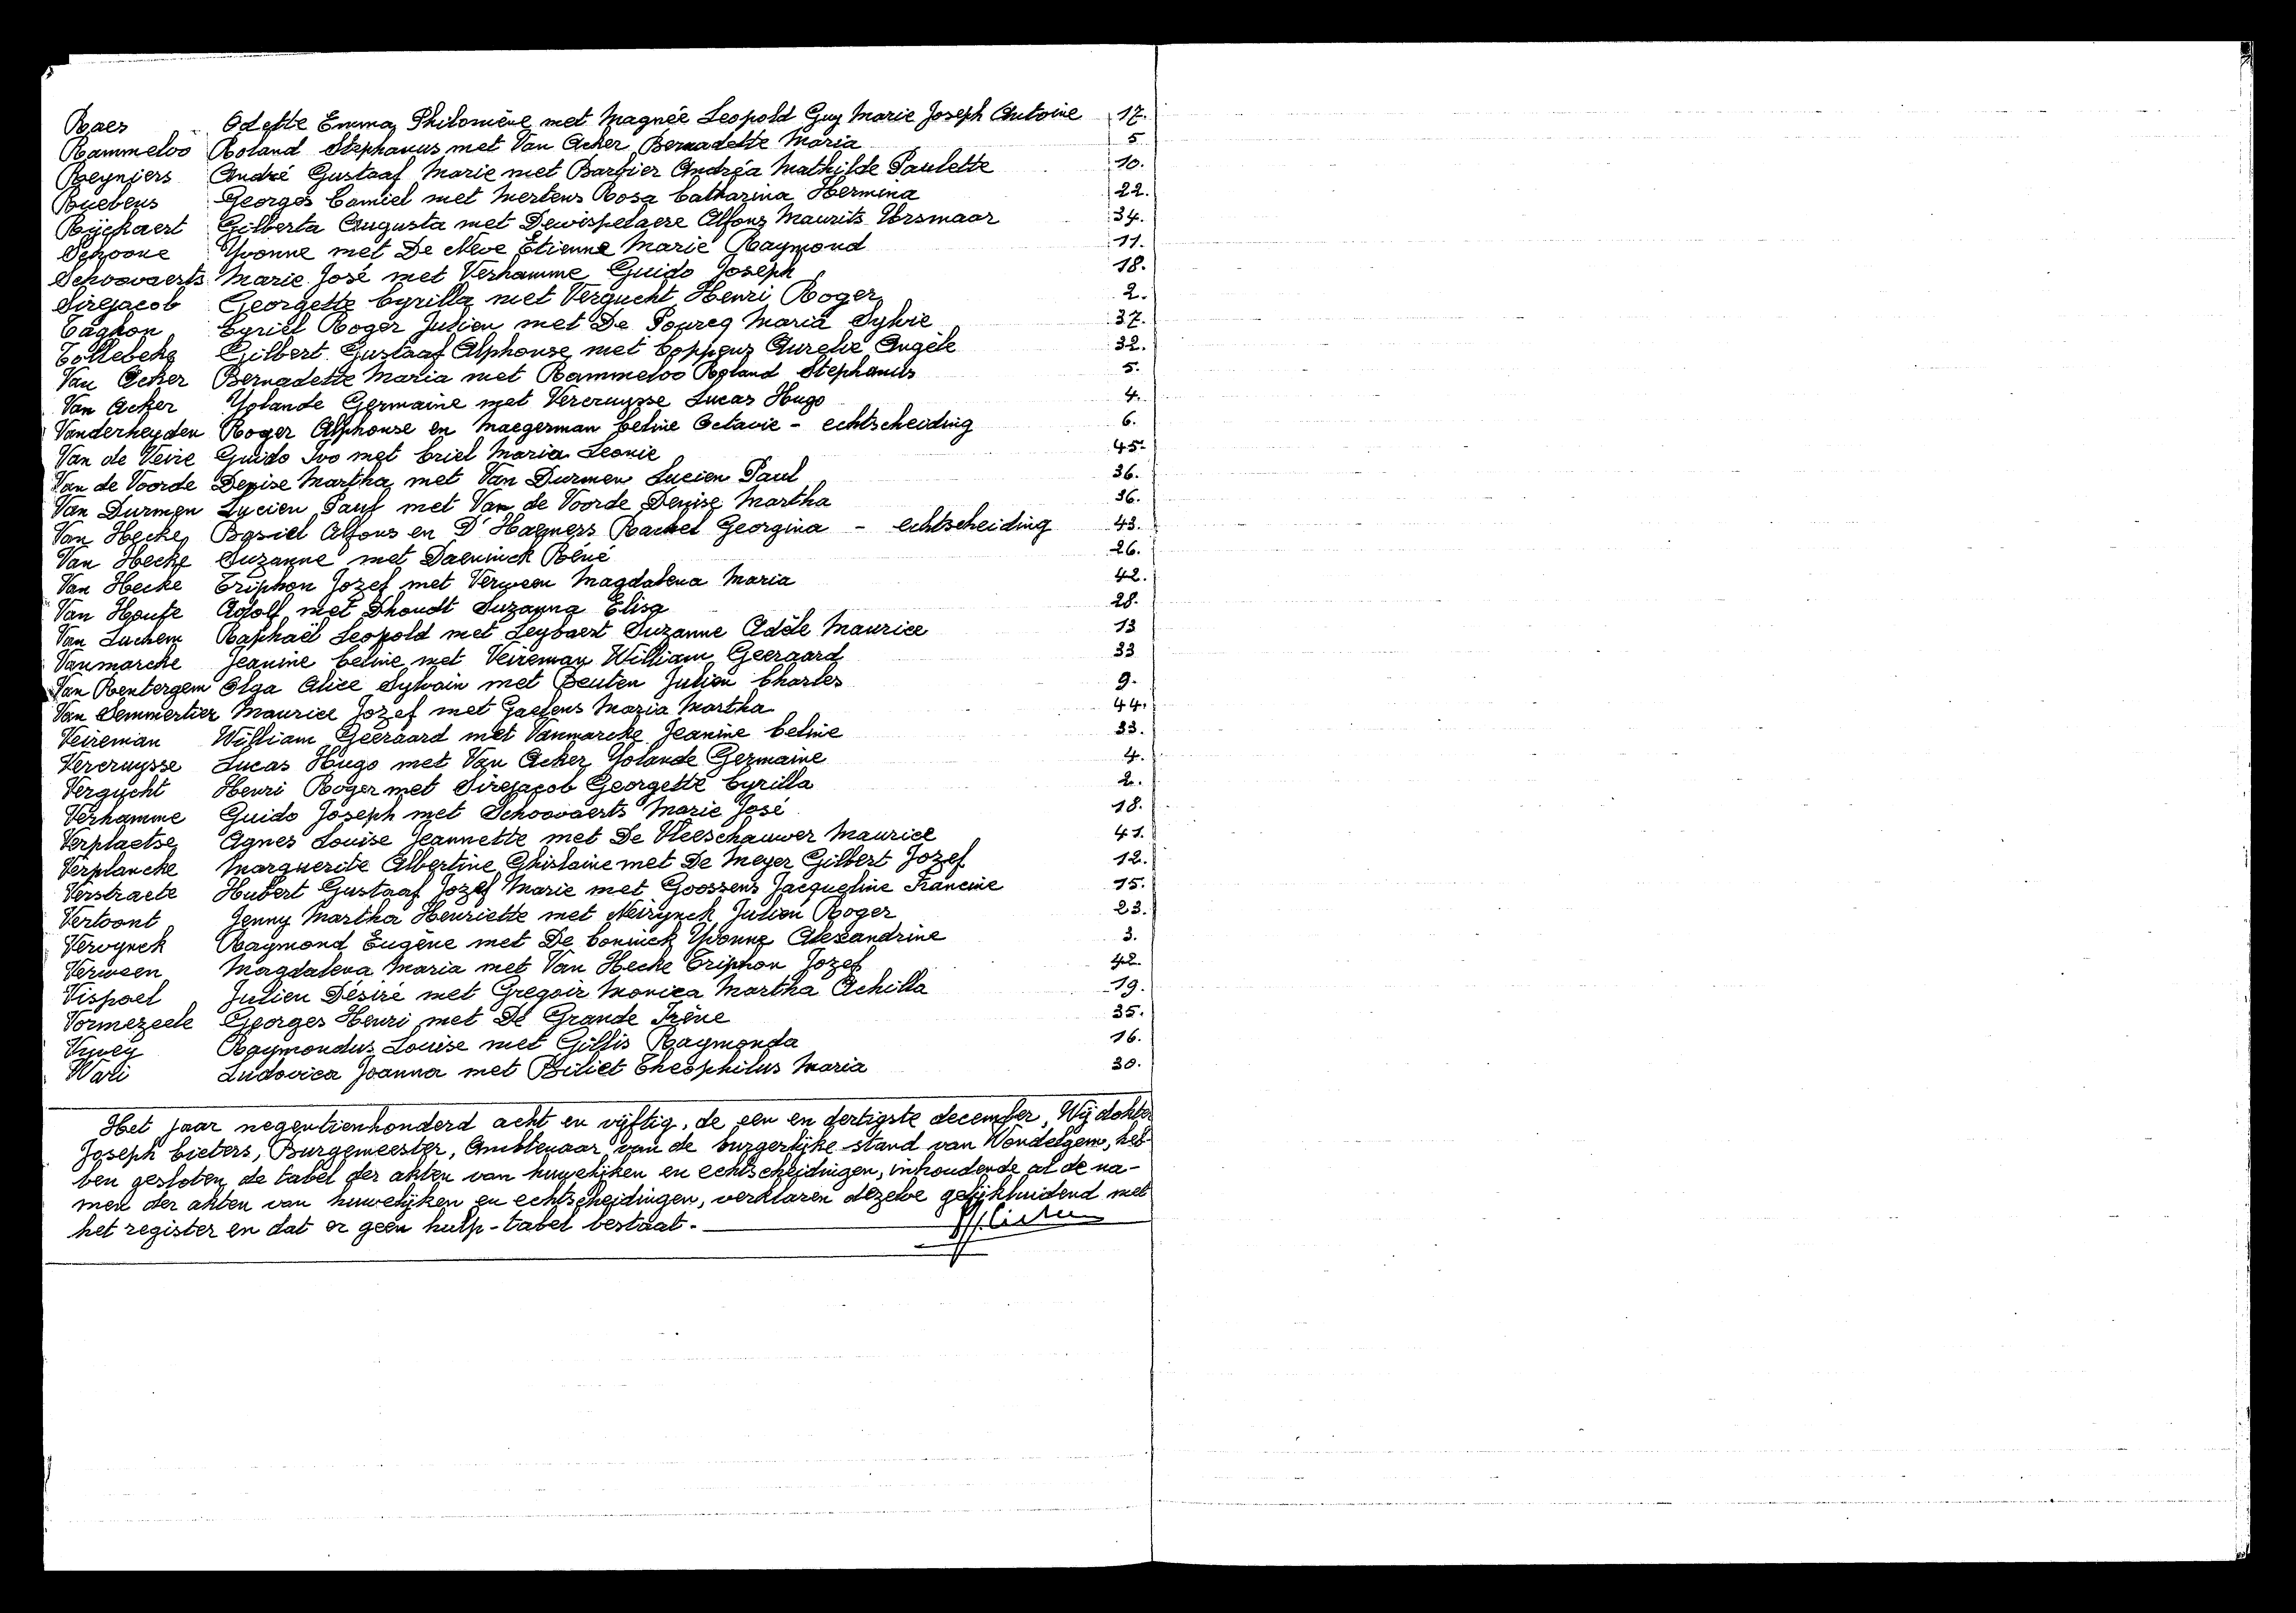 Raes Odette Emma Philomène met Magnée Leopold Guy Marie Joseph Antoine 17.
Rammeloo Roland Stephanus met Van Acker Bernadette Maria 5
Reyniers André Gustaaf Marie met Barbier Andréa Mathilde Paulette 10.
Ruebens Georges Camiel met Mertens Rosa Catharina Hermina 22.
Rÿckaert Gilberta Augusta met Dewispelaere Alfons Maurits Ursmaar 34.
Schoone Yvonne met De Neve Etienne Marie Raymond 11.
Schoovaerts Marie José met Verhamme Guido Joseph 18.
Sirejacob Georgette Cyrilla met Vergucht Henri Roger 2.
Taghon Cyriel Roger Julien met De Poureq Maria Sylvie 37.
Tollebeke Gilbert Gustaaf Alphonse met Coppens Aurelie Angèle 32.
Van Acker Bernadette Maria met Rammeloo Roland Stephanus 5.
Van Acker Yolande Germaine met Vercruysse Lucas Hugo 4.
Vanderheyden Roger Alphonse en Maegerman Celine Octavie - echtscheiding 6.
Van de Veire Guido Ivo met Criel Maria Leonie 45.
Van de Voorde Denise Martha met Van Durmen Lucien Paul 36.
Van Durmen Lucien Paul met Van de Voorde Denise Martha 36.
Van Hecke Basiel Alfons en D'Haeyers Rachel Georgina - echtscheiding 43.
Van Hecke Suzanne met Daeninck Réné 26.
Van Hecke Triphon Jozef met Verween Magdalena Maria 42.
Van Houte Adolf met Dhondt Suzanna Elisa 28.
Van Luchem Raphaël Leopold met Leybaert Suzanne Adèle Maurice 13
Vanmarcke Jeanine Celine met Veireman William Geeraard 33
Van Rentergem Olga Alice Sylvain met Beuten Julien Charles 9.
Van Semmertier Maurice Jozef met Gaelens Maria Martha 44.
Veireman William Geeraard met Vanmarcke Jeanine Celine 33.
Vercruysse Lucas Hugo met Van Acker Yolande Germaine 4.
Vergucht Henri Roger met Sirejacob Georgette Cyrilla 2.
Verhamme Guido Joseph met Schoovaerts Marie José 18.
Verplaetse Agnes Louise Jeannette met De Vleeschauwer Maurice 41.
Verplancke Marguerite Albertine Ghislaine met De Meyer Gilbert Jozef 12.
Verstraete Hubert Gustaaf Jozef Marie met Goossens Jacqueline Francine 15.
Vertoont Jenny Martha Henriette met Neirynck Julien Roger 23.
Vervynck Raymond Eugène met De Coninck Yvonne Alexandrine 3.
Verween Magdalena Maria met Van Hecke Triphon Jozef 42
Vispoel Julien Désiré met Gregoir Monica Martha Achilla 19.
Vormezeele Georges Henri met De Grande Irène 35.
Vyvey Raymondus Louise met Gillis Raymonda 16.
Wari Ludovica Joanna met Biliet Theophilus Maria 30.
Het jaar negentienhonderd acht en vijftig, de een en dertigste december, Wij dokter
Joseph Cieters, Burgemeester, Ambtenaar van de burgerlijke stand van Wondelgem, heb-
ben gesloten de tabel der akten van huwelijken en echtscheidingen, inhoudende al de na-
men der akten van huwelijken en echtscheidingen, verklaren dezelve gelijkluidend met
het register en dat er geen hulp-tabel bestaat.